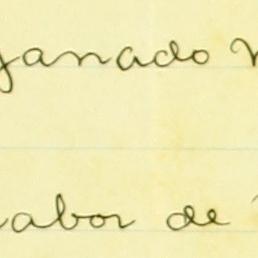 ganado
labor de